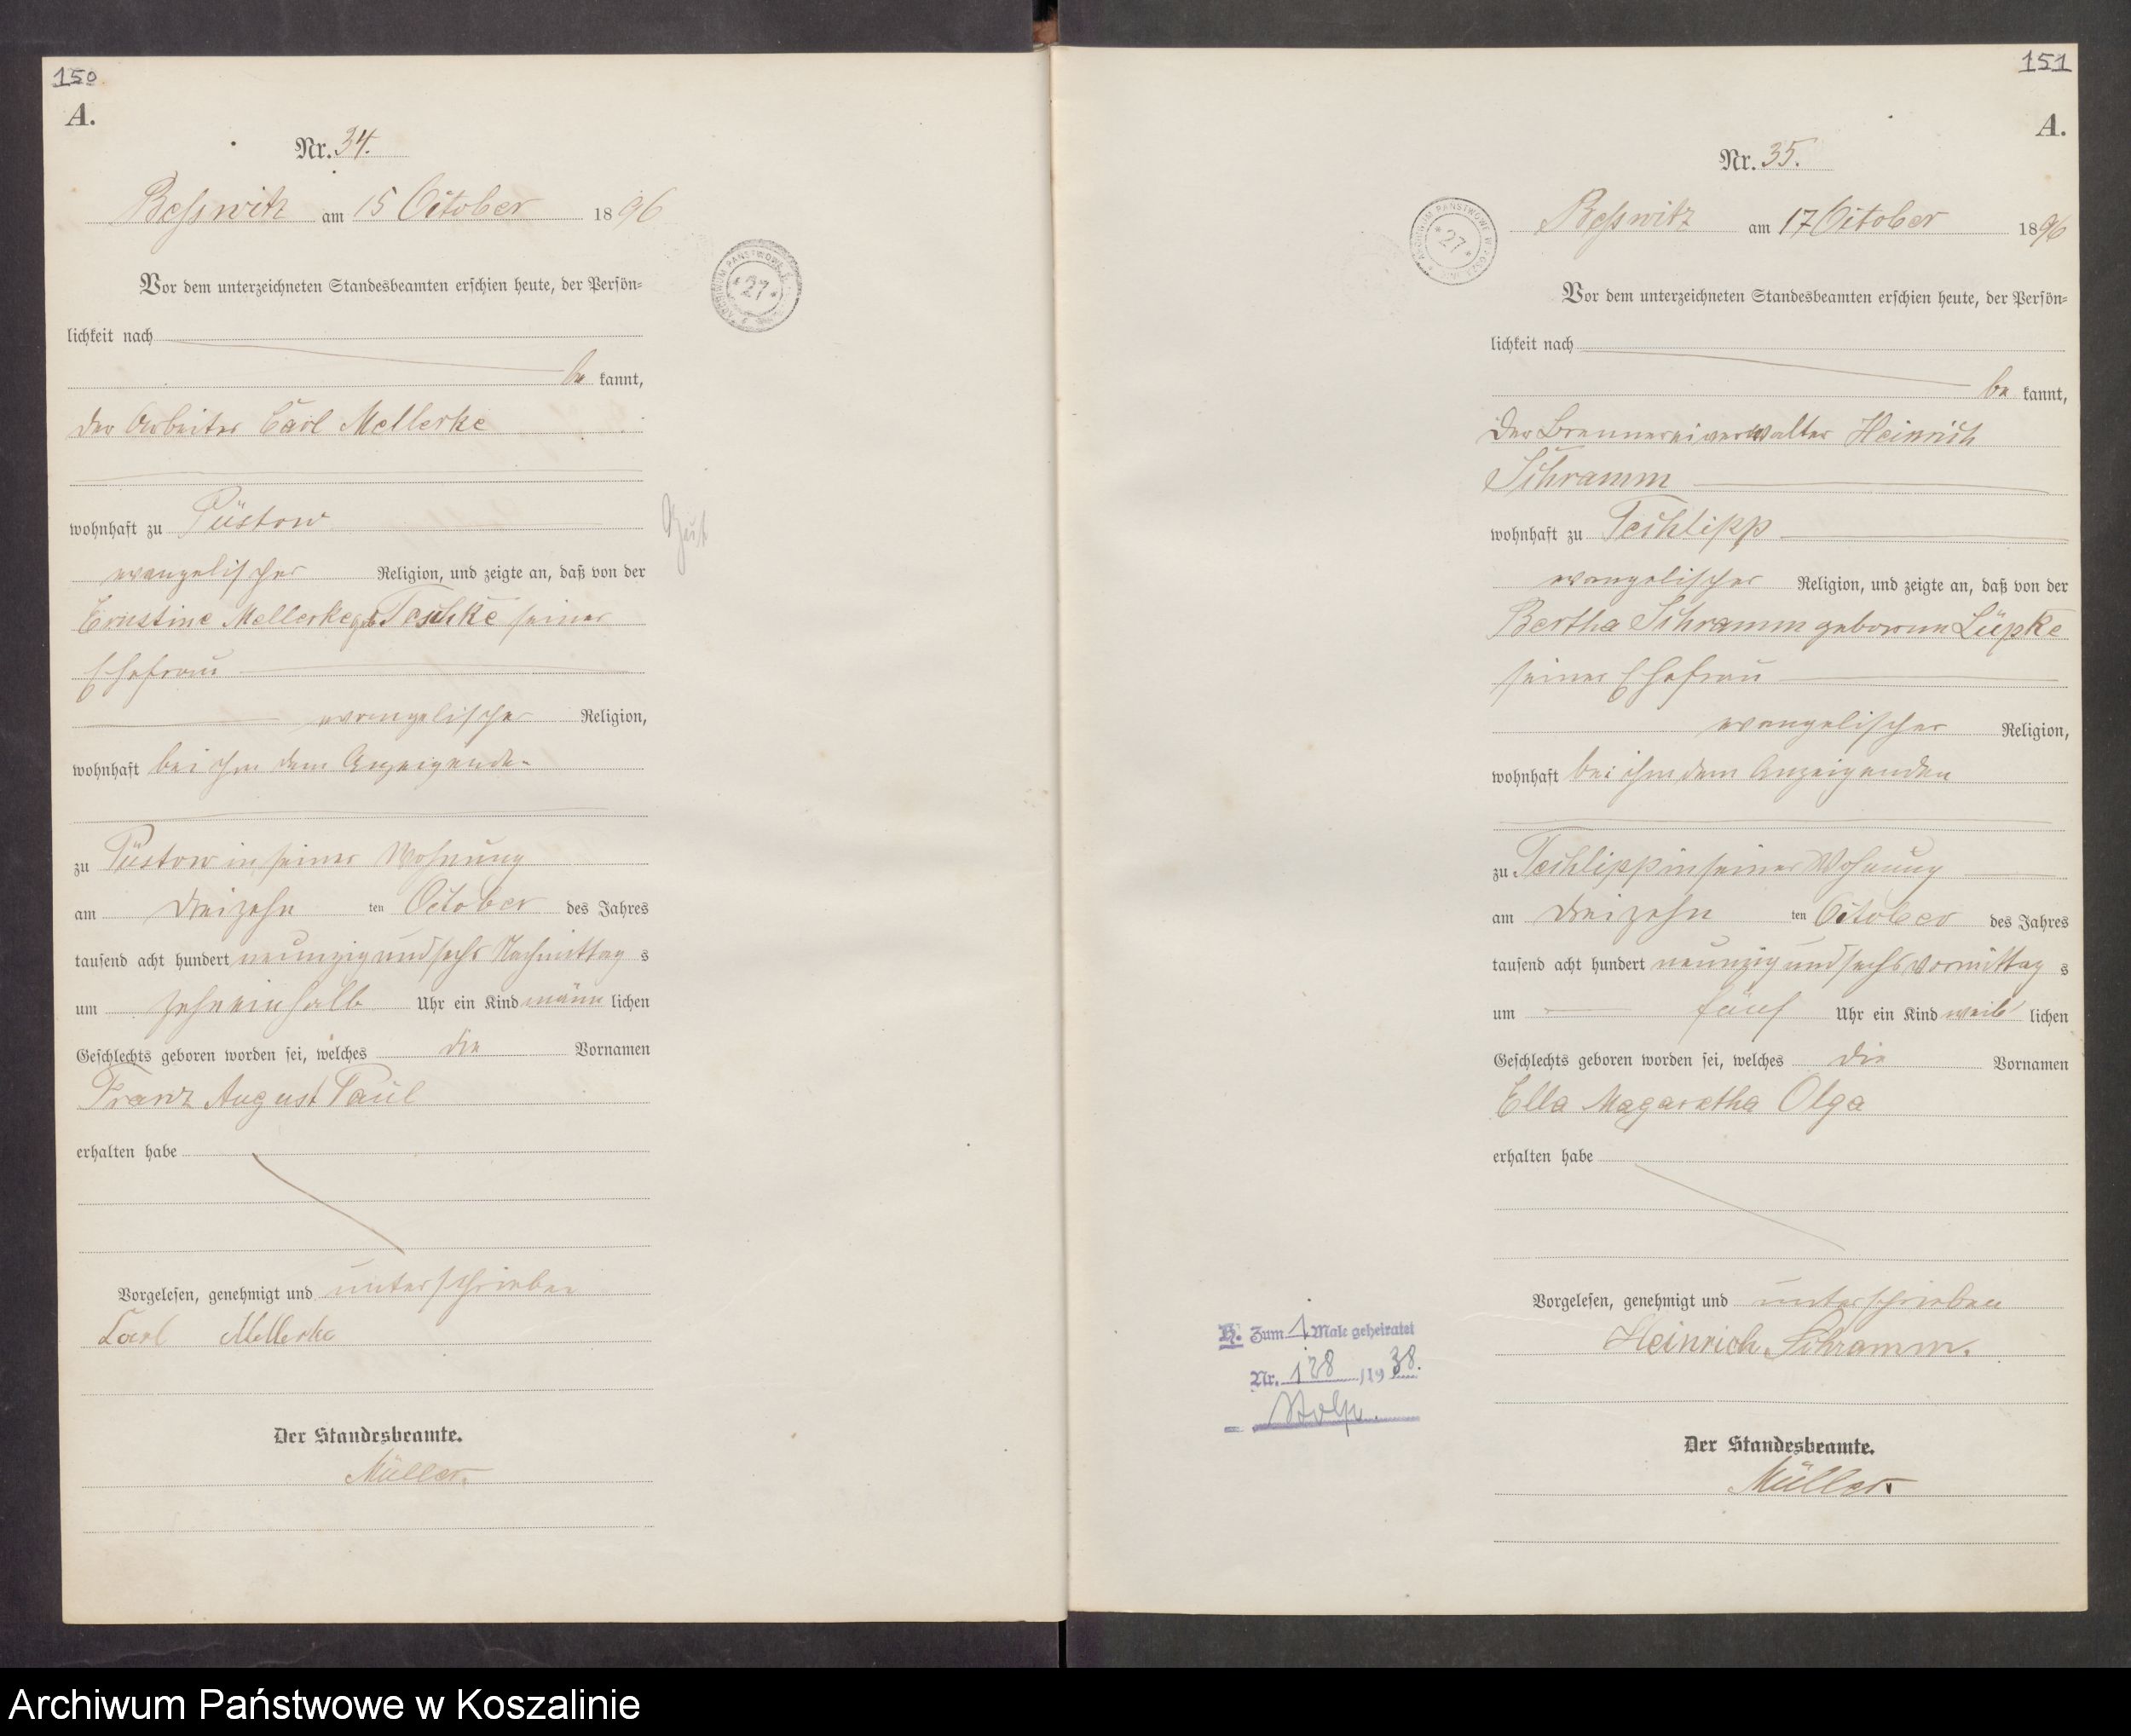 150
A.
Nr. 34.
Besswitz am 15 October 1896
Vor dem unterzeichneten Standesbeamten erschien heute, der Persön=
lichkeit nach
be kannt,
der Arbeiter Carl Mellerke
wohnhaft zu Püstow
evangelischer Religion, und zeigte an, daß von der
Ernestine Mellerke geb Teschke seiner
Ehefrau
evangelischer Religion,
wohnhaft bei ihm dem Anzeigenden
zu Püstow in seiner Wohnung
am dreizehn ten October des Jahres
tausend acht hundert neunzig und sechs Nachmittag s
um zehneinhalb Uhr ein Kind männ lichen
Geschlechts geboren worden sei, welches die Vornamen
Franz August Paul
erhalten habe
Vorgelesen, genehmigt und unterschrieben
Carl Mellerke
Der Standesbeamte.
Müller.
ARCHIWUM PAŃSTWOWE
* 27 *
151
A.
Nr. 35.
Besswitz am 17 October 1896
Vor dem unterzeichneten Standesbeamten erschien heute, der Persön=
lichkeit nach
be kannt,
der Brennereiverwalter Heinrich
Schramm
wohnhaft zu Techlipp
evangelischer Religion, und zeigte an, daß von der
Bertha Schramm geborene Lüpke
seiner Ehefrau
evangelischer Religion,
wohnhaft bei ihm dem Anzeigenden
zu Techlipp in seiner Wohnung
am dreizehn ten October des Jahres
tausend acht hundert neunzig und sechs vormittag s
um fünf Uhr ein Kind weib lichen
Geschlechts geboren worden sei, welches die Vornamen
Ella Magaretha Olga
erhalten habe
Vorgelesen, genehmigt und unterschrieben
Heinrich Schramm.
Der Standesbeamte.
Müller.
ARCHIWUM PAŃSTWOWE W KOSZALINIE
* 27 *
H. Zum 1 Male geheiratet
Nr. 128 /1938.
Stolp.
Archiwum Państwowe w Koszalinie